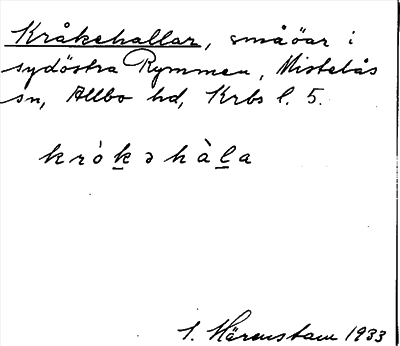 Kråkehallar, småöar i
sydöstra Rymmen, Mistelås
sn, Allbo hd, Krbs l. 5.
kró̀kəhàla
S. Härenstam 1933